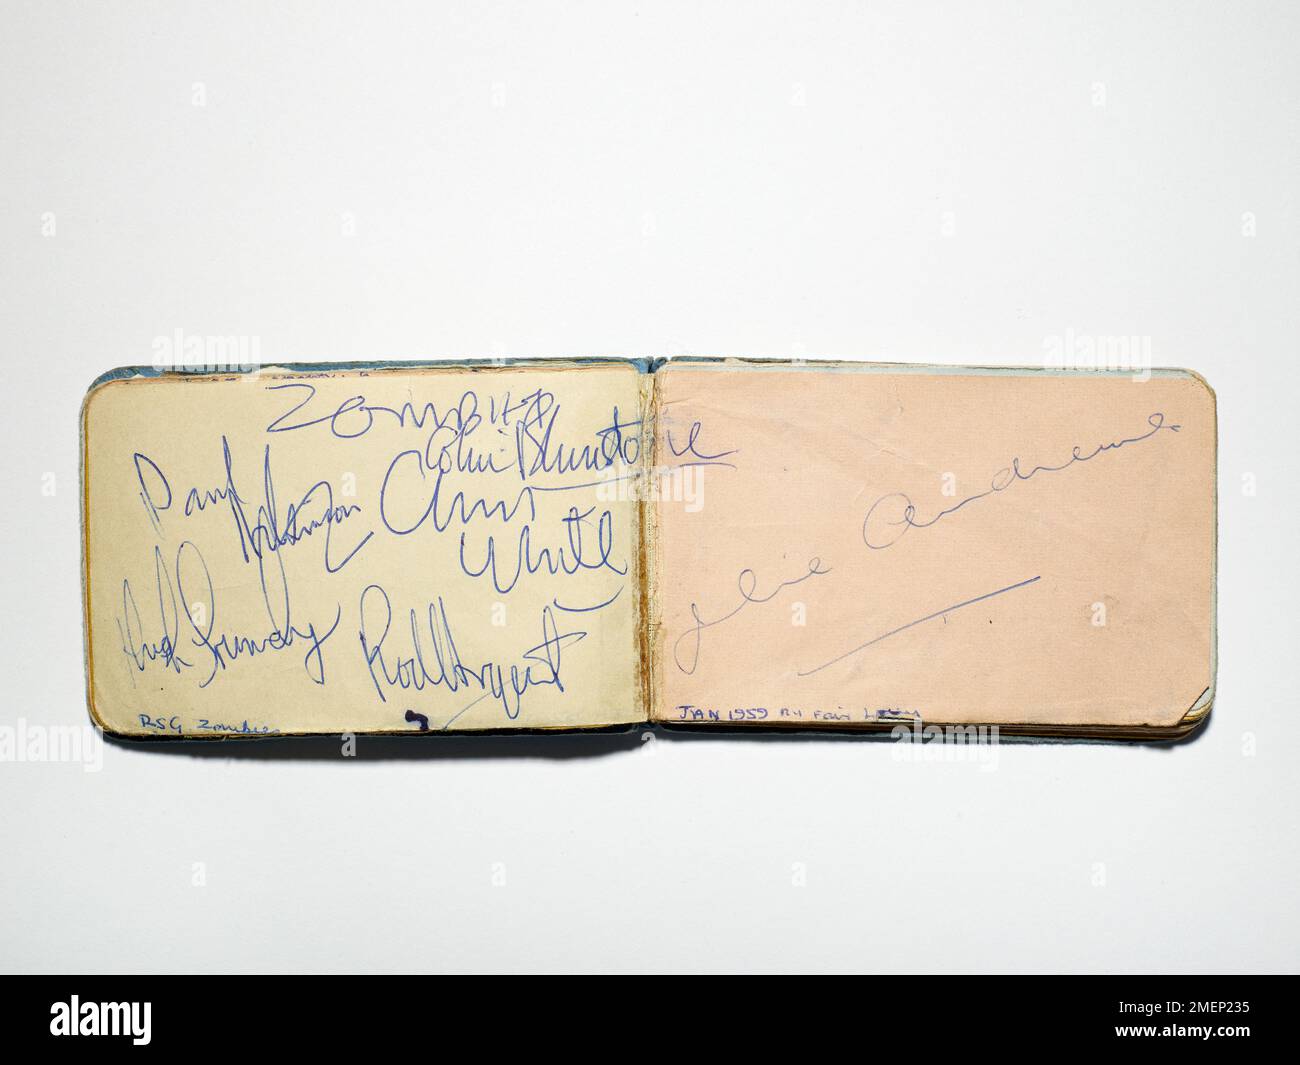 ZOMBIES
Colin Blunstone
Paul Atkinson
Chris
White
Hugh Grundy
Rod Argent
RSG Zombies
Julie Andrews
JAN 1959 My Fair Lady
alamy
a
alamy
Image ID: 2MEP235
www.alamy.com